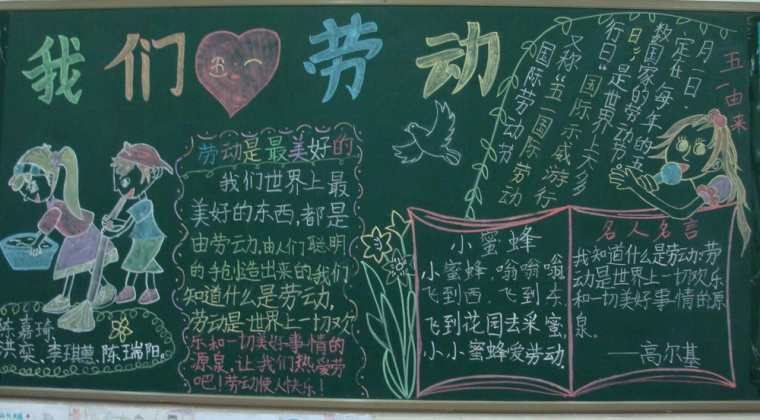 我们劳动
劳动是最美好的
我们世界上最
美好的东西,都是
由劳动,由人们聪明
的手创造出来的我们
知道什么是劳动,
劳动是世界上一切欢
乐和一切美好事情的
源泉,让我们热爱劳
吧!劳动使人快乐!
陈嘉琦,
洪奕、李琪蕙、陈瑞阳。
五一由来
国际劳动节
又称“五一国际劳动
日”国际示威游行
行日”是世界上大多
数国家的劳动节。
定在每年的五
月一日.
小蜜蜂
小蜜蜂,嗡嗡嗡
飞到西,飞到东
飞到花园去采蜜,
小小蜜蜂爱劳动.
名人名言
我知道什么是劳动:劳
动是世界上一切欢乐
和一切美好事情的源
泉。
——高尔基